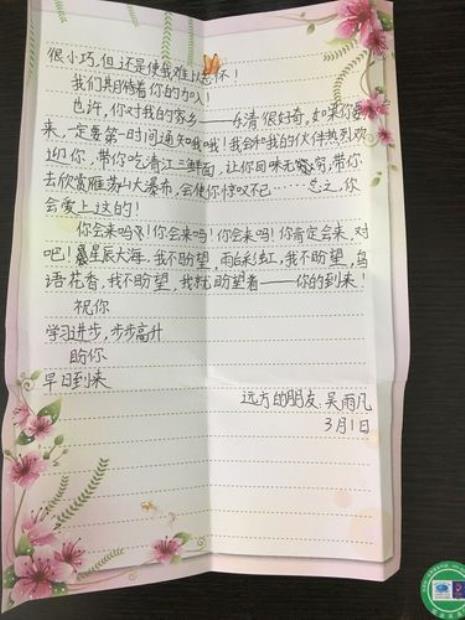 很小巧,但还是使我难以忘怀!
我们共同期待着你的加入!
也许,你对我的家乡——乐清很好奇,如果你要
来,一定要第一时间通知我哦!我会和我的伙伴热烈欢
迎你,带你吃清江三鲜面,让你回味无穷,带你
去欣赏雁荡山大瀑布,会使你惊叹不已……总之,你
会爱上这的!
你会来吗!你会来吗!你会来吗!你肯定会来,对
吧!星辰大海,我不盼望,雨后彩虹,我不盼望,鸟
语花香,我不盼望,我就盼望着——你的到来!
祝你
学习进步,步步高升
盼你
早日到来
远方的朋友:吴雨凡
3月1日